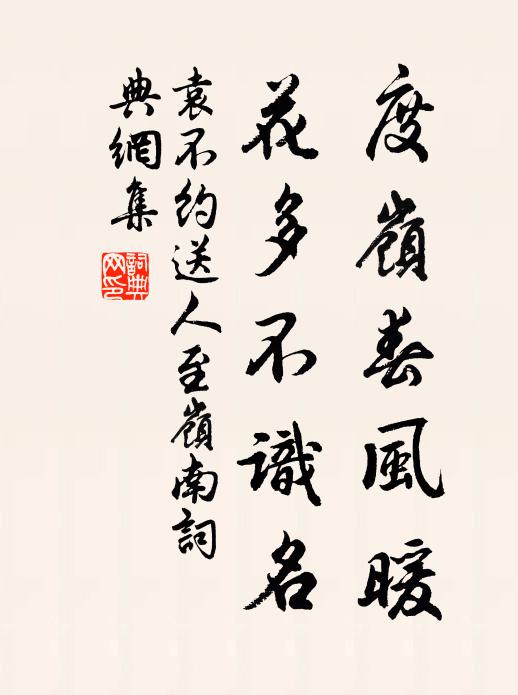 度嶺春風暖
花多不識名
袁不約送人至嶺南詞
典網集
詞典
网印